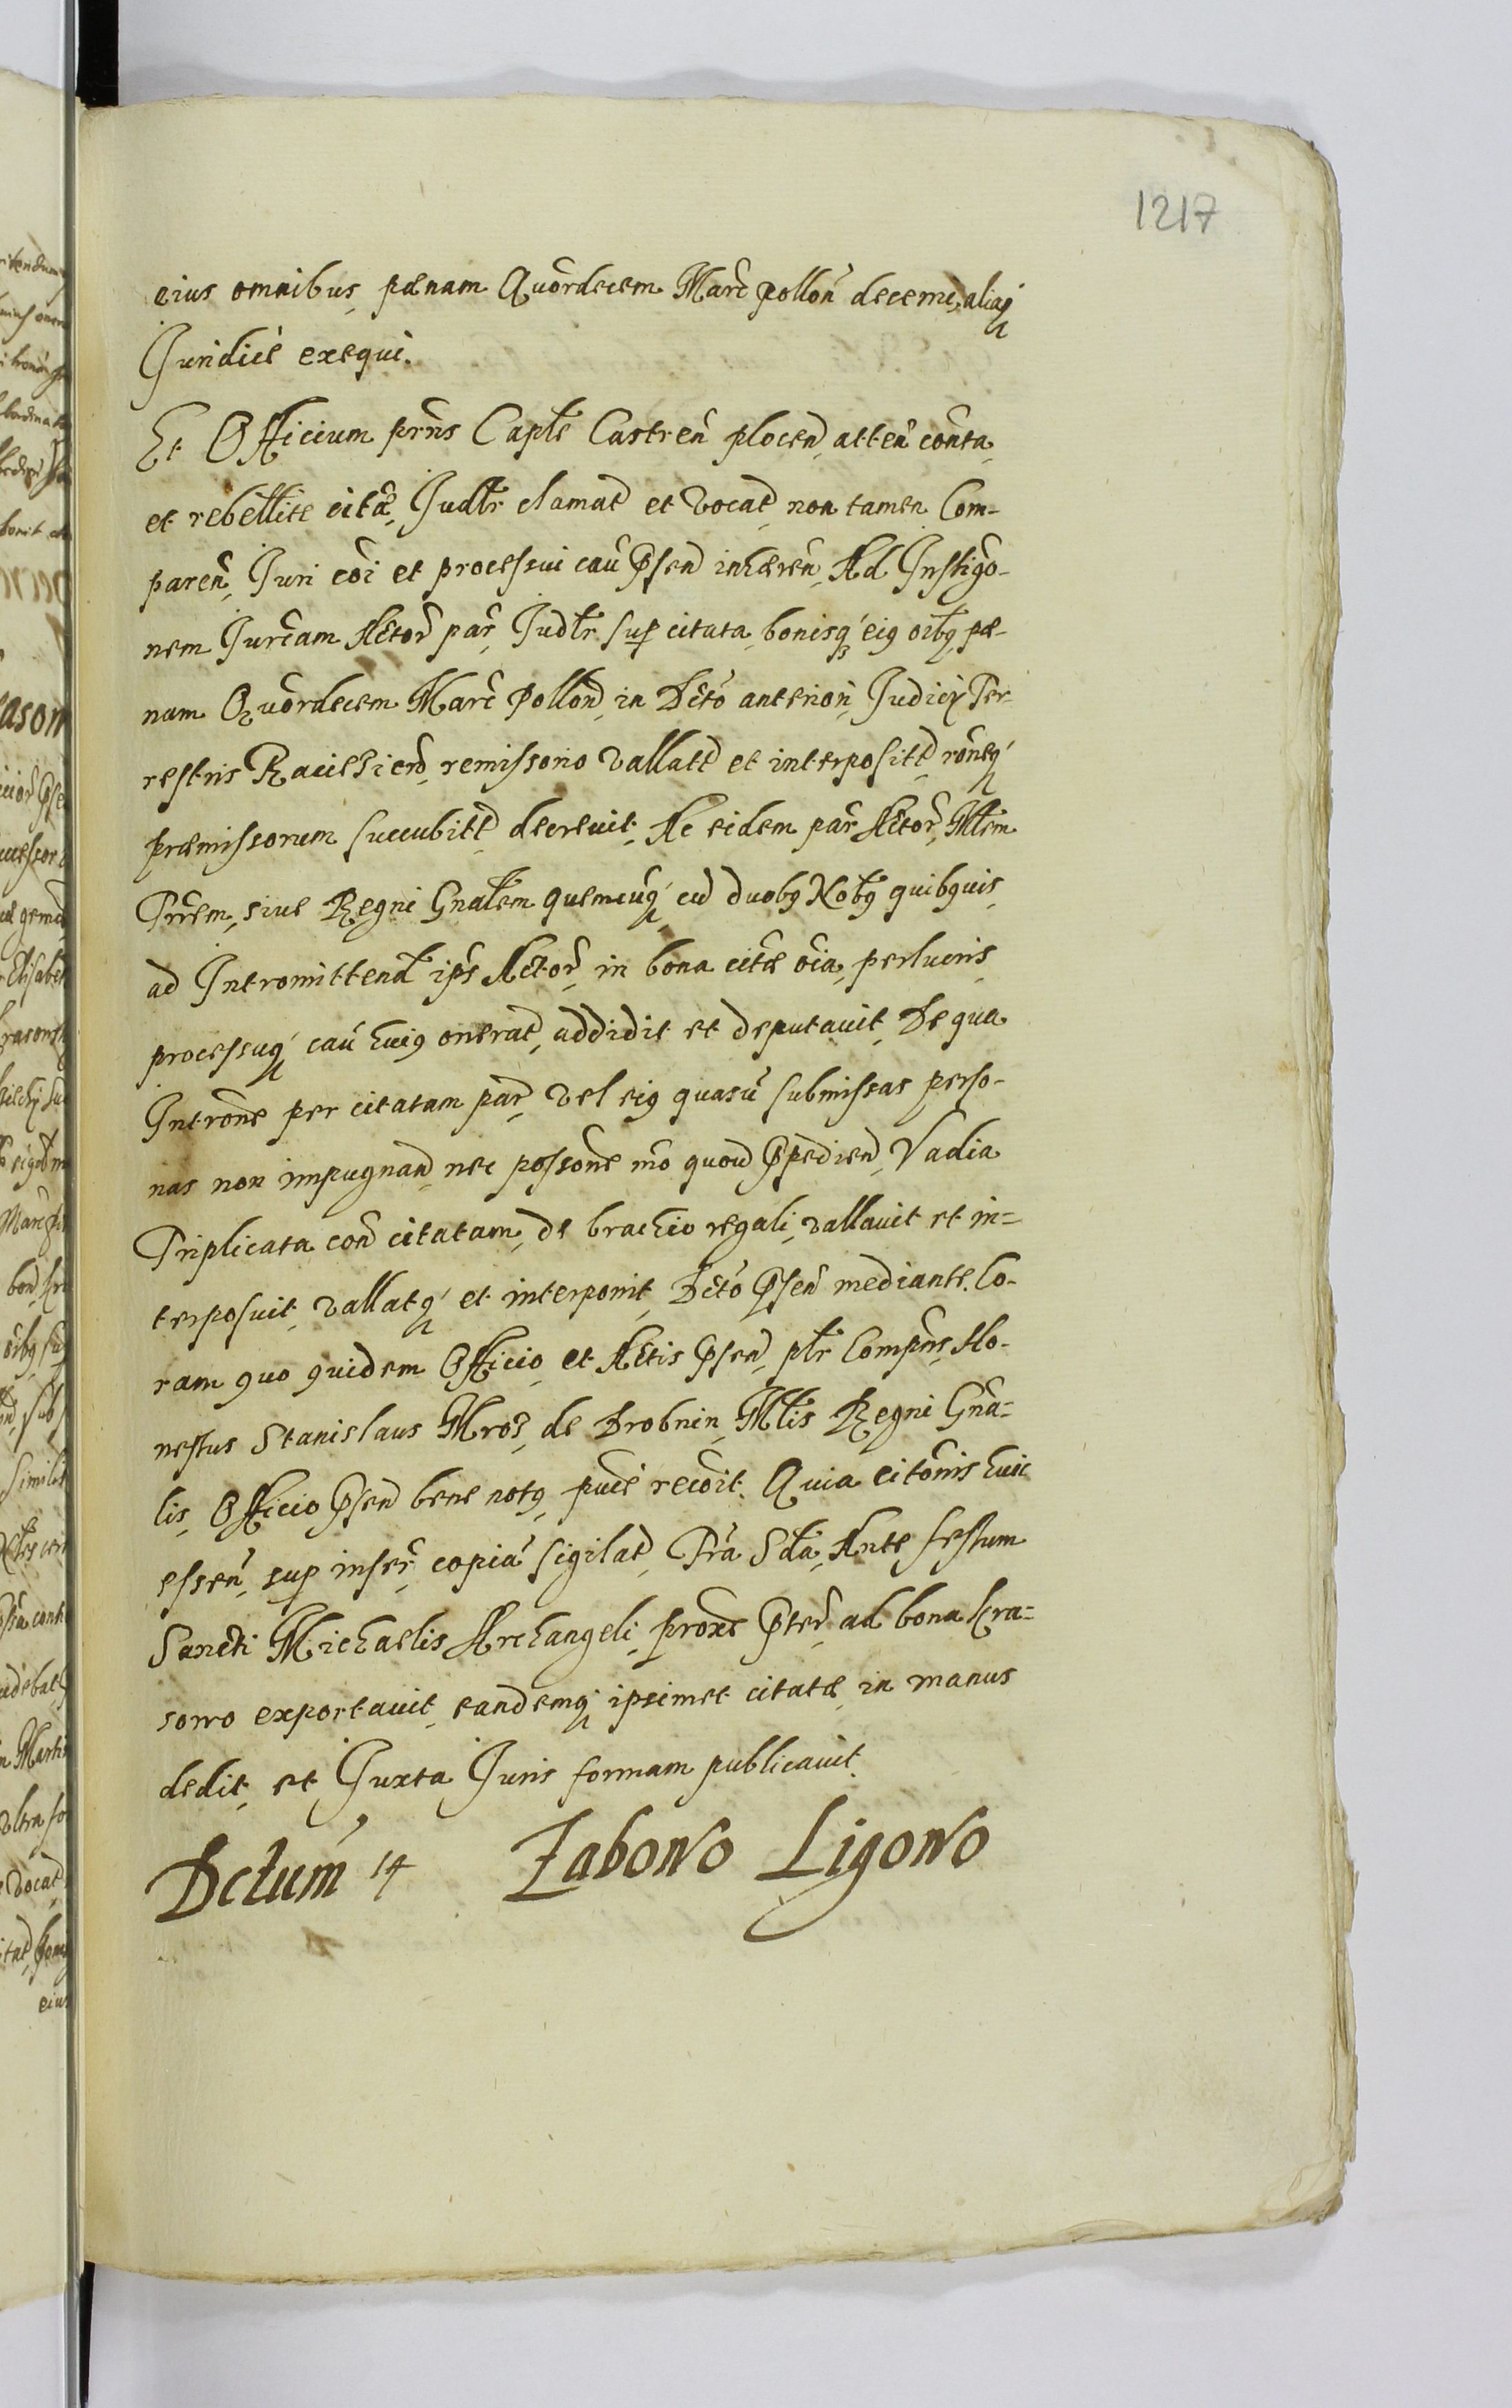 1217
eius omnibus, pœnam Quordecem Marc pollon decerni, aliaq
Juridice exequi.
Et Officium prns Caple Castren plocen, atten conta,
et rebellite citæ, Judlr clamat et vocat, non tamen Com-
paren, Juri coi et processui cau Psen inhæren, Ad Instigo-
nem Jurcam Actor par, Judlr sup citata, bonisq eig oibg, pœ-
nam Quordecem Marc Pollon, in Dcto anteriori, Judicij Ter-
restris Raciesien, remissorio vallatt et interpositt, roneq
præmissorum succubitt, decrevit, Ac eidem par Actor, Mlem
Trrem, sive Regni Gnalem quemcuq, cu duobg Nobg quibguis,
ad Intromittend ips Actor, in bona citæ oia, perlucris,
processuq cau huig onerat, addidit et deputavit, De qua
Introne per citatam par, vel eig quasu submissas perso-
nas non impugnand, nec possone mo quou Ppediend, Vadia
Triplicata con citatam, de brachio regali, vallavit et in-
terposuit, vallatq et interponit, Dcto Psen mediante. Co-
ram quo quidem Officio, et Actis Psen, plr Comprns, Ho-
nestus Stanislaus Mroz, de Drobnin, Mlis Regni Gna-
lis, Officio Psen bene notg, puce recoit. Quia citonis huic
essen, sup inser, copia sigilat, Fra Sda, Ante festum
Sancti Michaelis Archangeli, proxe Pter, ad bona Kra-
sowo exportavit, eandemq ipsimet citatæ, in manus
dedit, et Juxta Juris formam publicavit.
Dctum 14 Zabowo Ligowo